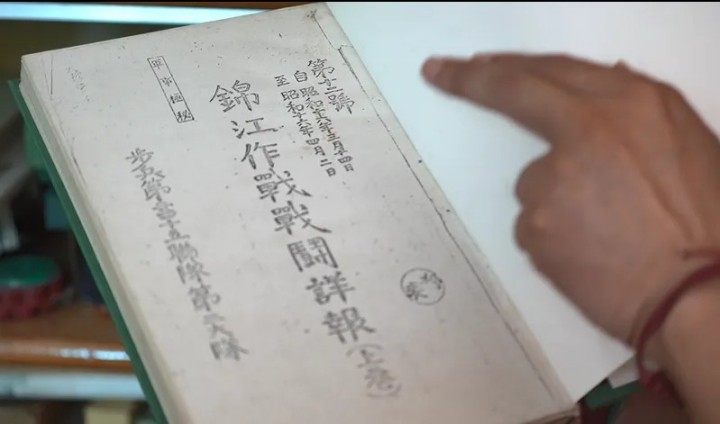 第十二號
自 昭和十六年三月十四日
至 昭和十六年四月二日
錦江作戰戰鬪詳報(上卷)
軍事極秘
步兵第 十五聯隊第 大隊